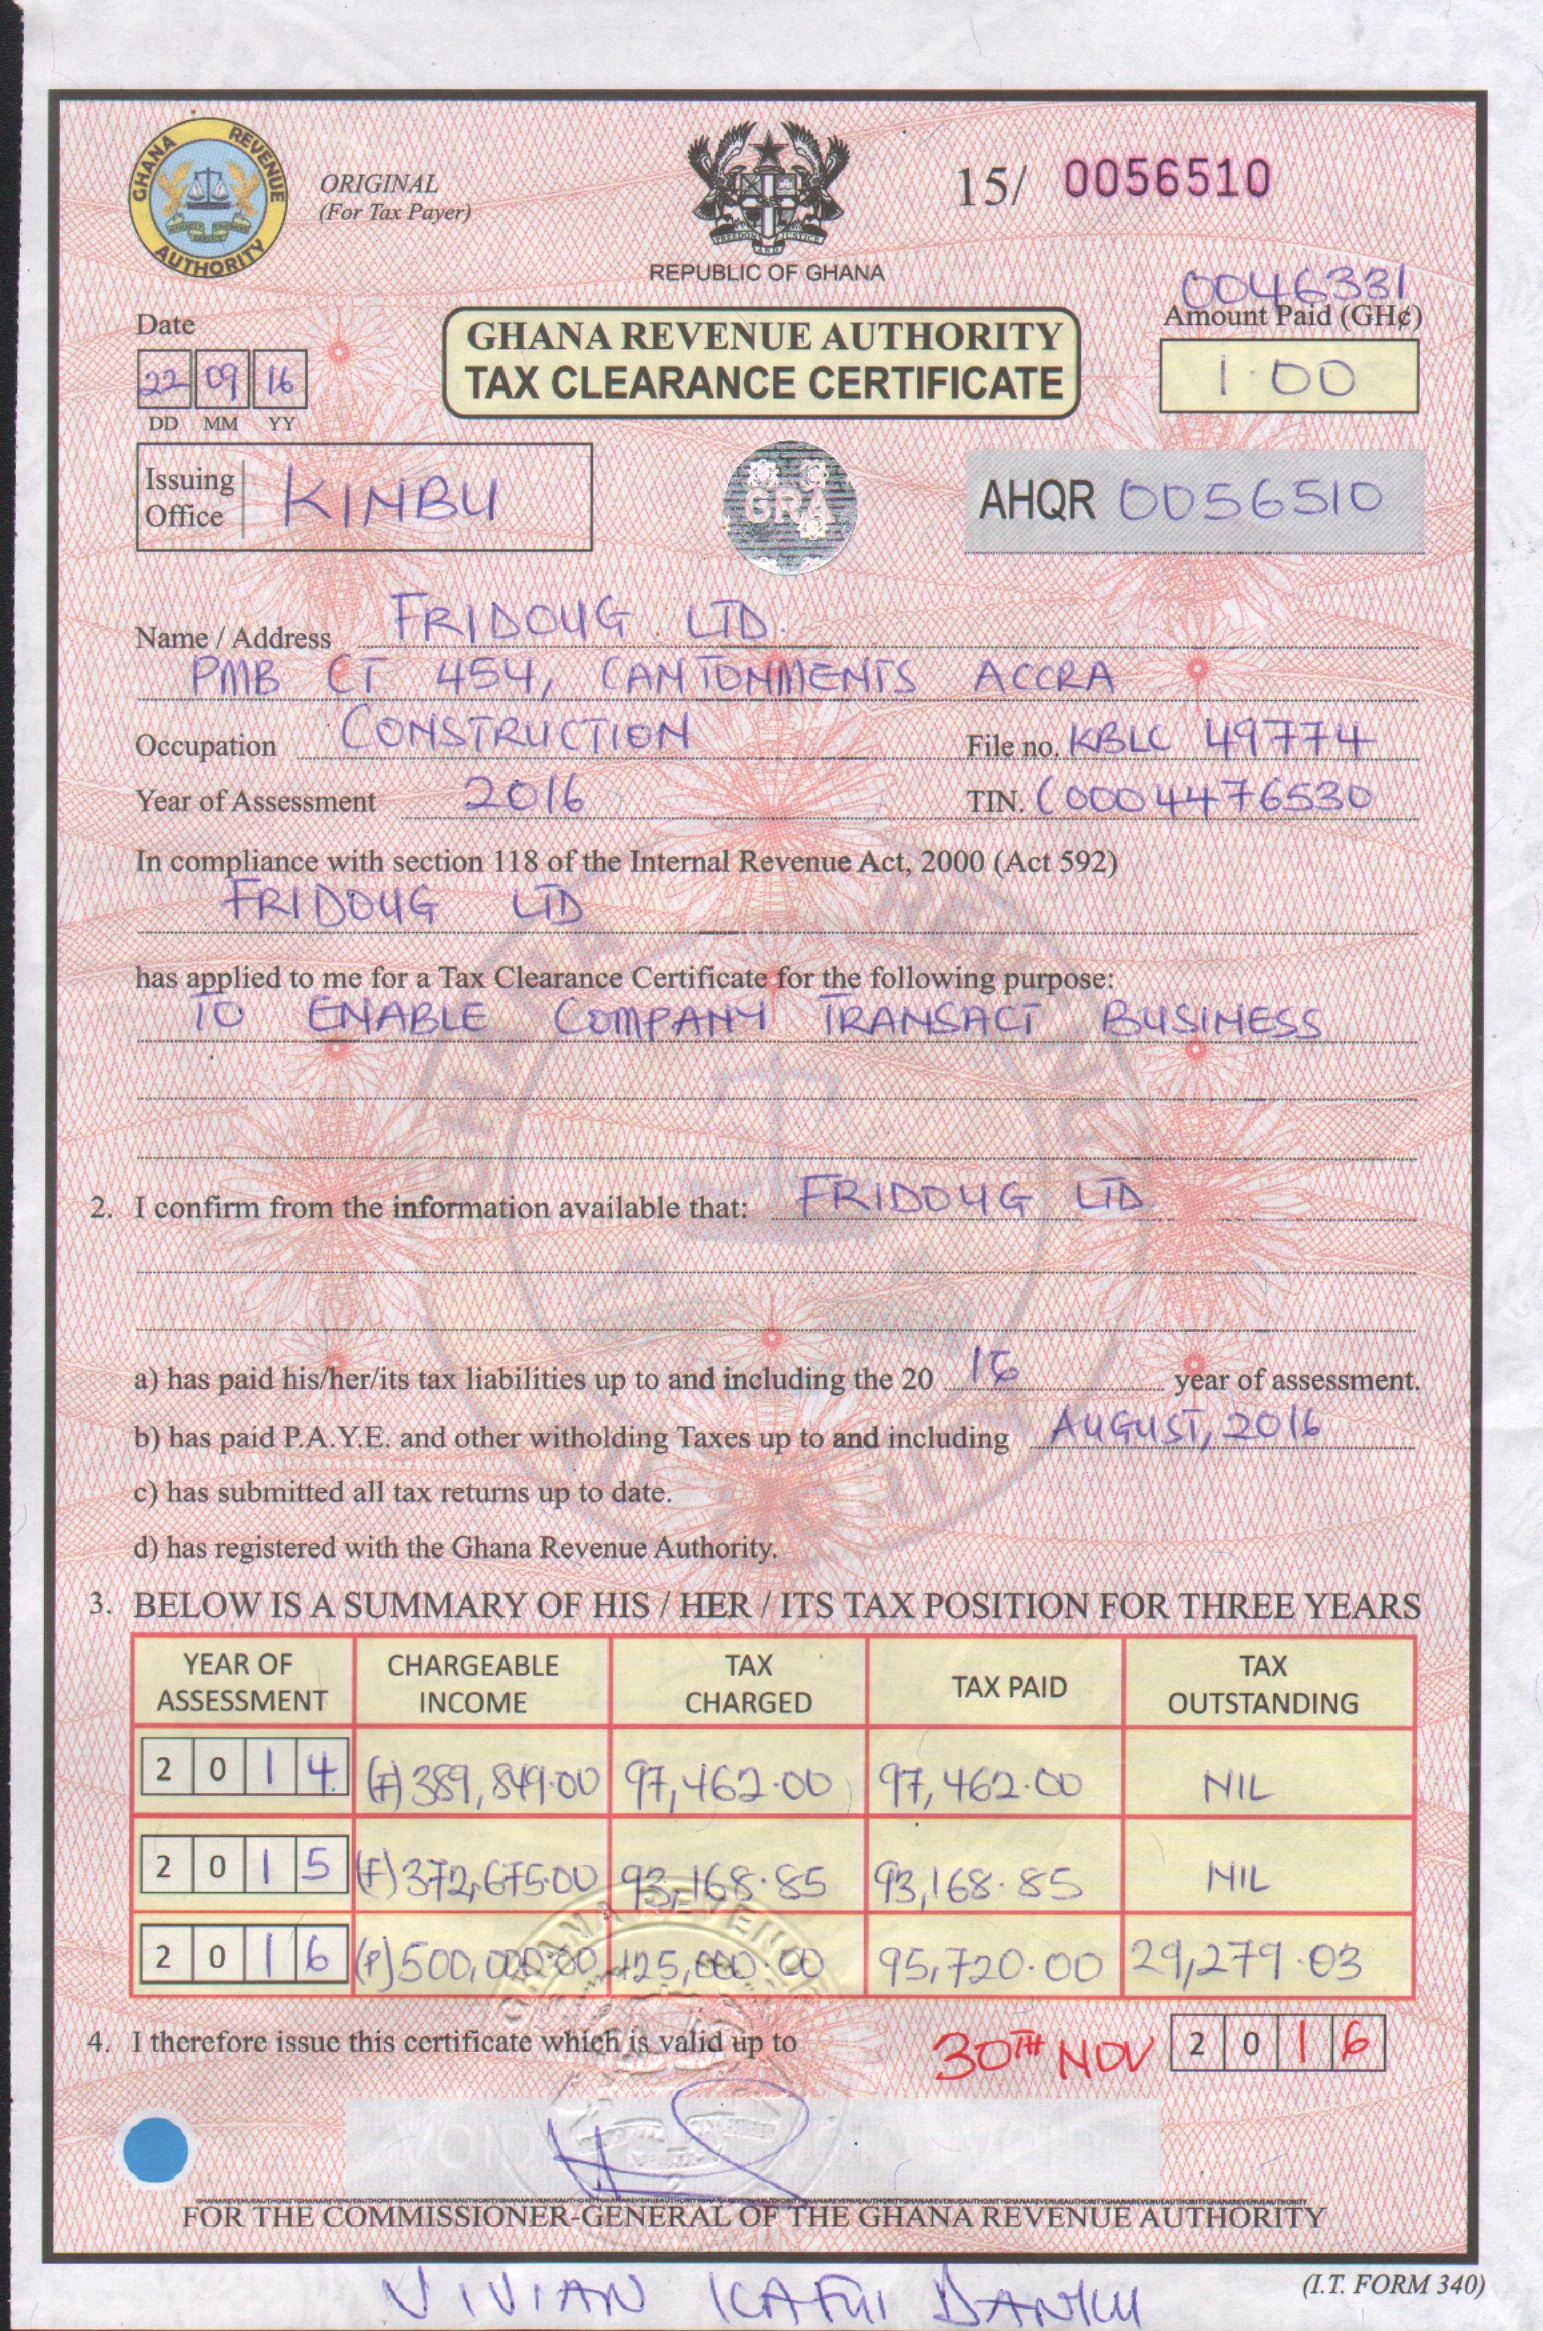 GHANA REVENUE AUTHORITY
ORIGINAL
(For Tax Payer)
FREEDOM AND JUSTICE
REPUBLIC OF GHANA
15/ 0056510
0046331
Date
22 09 16
DD MM YY
GHANA REVENUE AUTHORITY
TAX CLEARANCE CERTIFICATE
Amount Paid (GH¢)
1.00
Issuing
Office KINBU
GRA
AHQR 0056510
Name / Address FRIDOUG LTD.
PMB CT 454, CANTONMENTS ACCRA
Occupation CONSTRUCTION File no. KBLC 49774
Year of Assessment 2016 TIN. C0004476530
In compliance with section 118 of the Internal Revenue Act, 2000 (Act 592)
FRIDOUG LTD
has applied to me for a Tax Clearance Certificate for the following purpose:
TO ENABLE COMPANY TRANSACT BUSINESS
2. I confirm from the information available that: FRIDOUG LTD
a) has paid his/her/its tax liabilities up to and including the 20 16 year of assessment.
b) has paid P.A.Y.E. and other witholding Taxes up to and including AUGUST, 2016
c) has submitted all tax returns up to date.
d) has registered with the Ghana Revenue Authority.
3. BELOW IS A SUMMARY OF HIS / HER / ITS TAX POSITION FOR THREE YEARS
YEAR OF ASSESSMENT CHARGEABLE INCOME TAX CHARGED TAX PAID TAX OUTSTANDING
2014 (F) 389,849.00 97,462.00 97,462.00 NIL
2015 (F) 372,675.00 93,168.85 93,168.85 NIL
2016 (P) 500,000.00 125,000.00 95,720.00 29,279.03
4. I therefore issue this certificate which is valid up to 30TH NOV 2016
FOR THE COMMISSIONER-GENERAL OF THE GHANA REVENUE AUTHORITY
(I.T. FORM 340)
VIVIAN KAFUI